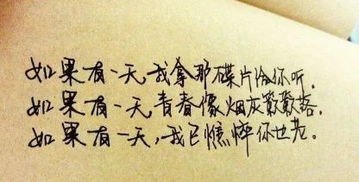 如果有一天,我拿那碟片给你听.
如果有一天,青春像烟灰簌簌落.
如果有一天,我已憔悴你也老.